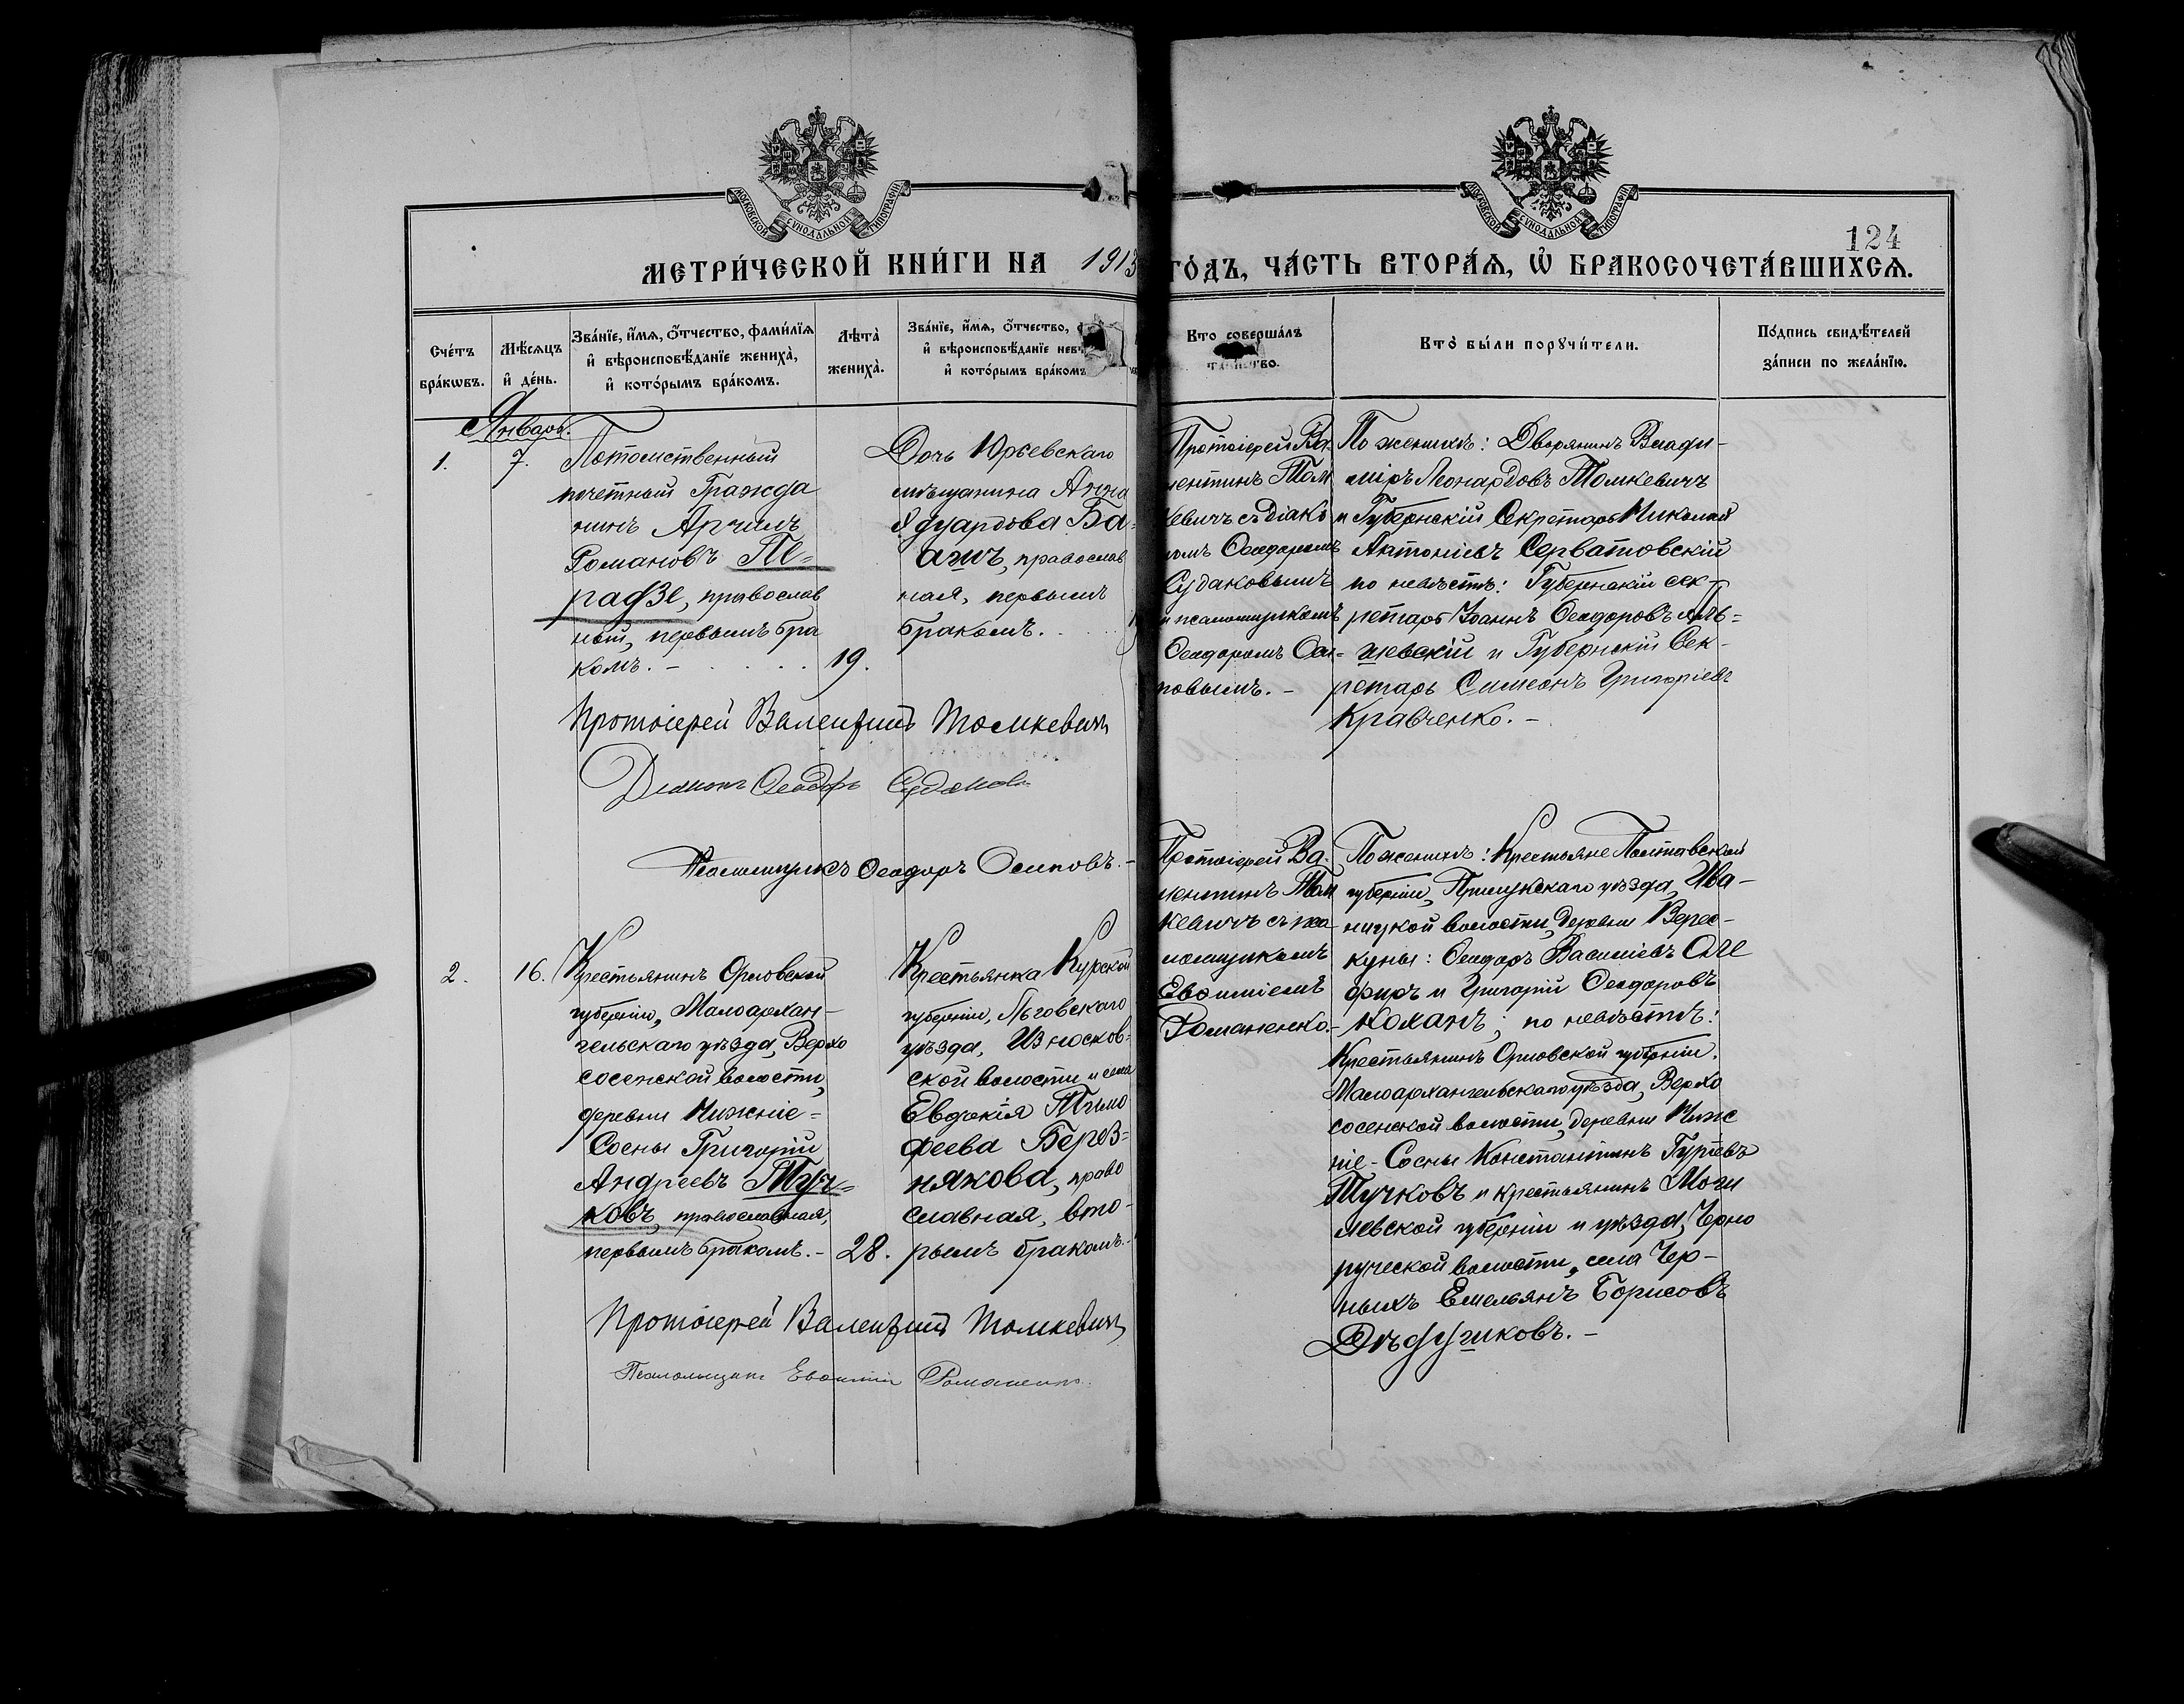 МОСКОВСКОЙ СѴНОДАЛЬНОЙ ТИПОГРАФІИ
МОСКОВСКОЙ СѴНОДАЛЬНОЙ ТИПОГРАФІИ
124
МЕТРИ́ЧЕСКОЙ КНИ́ГИ НА 1913
ГО́ДЪ, ЧА́СТЬ ВТОРА́Ѧ, Ѡ҆ БРАКОСОЧЕТА́ВШИХСѦ.
Сче́тъ бра́кѡвъ.
Мѣ́сѧцъ и҆ де́нь.
Зва́нїе, и҆́мѧ, ѻ҆́тчество, фами́лїѧ
и҆ вѣроисповѣ́данїе жениха̀,
и҆ кото́рымъ бра́комъ.
Лѣта̀
жениха̀.
Зва́нїе, и҆́мѧ, ѻ҆́тчество,
и҆ вѣроисповѣ́данїе
и҆ кото́рымъ бра́комъ
Кто соверша́лъ
Кто̀ бы́ли порꙋчи́тели.
По́дпись свидѣ́телей
за́писи по жела́нїю.
Январь.
1.
7.
Потомственный
почетный Гражда
нинъ Арчилъ
Романовъ Пе=
радзе, православ
ный, первымъ бра
комъ. –
19.
Дочь Юрьевскаго
мѣщанина Анна
Эдуардова Ба=
ажъ, православ
ная, первымъ
бракомъ.
Протоіерей Ва
лентинъ Том
кевичъ съ діако
номъ Ѳеодоромъ
Судаковымъ
и псаломщикомъ
Ѳеодоромъ Оси-
повымъ. –
По женихѣ: Дворянинъ Влади-
міръ Леонардовъ Томкевичъ
и Губернскій Секретарь Николай
Антоніевъ Серватовскій
по невѣстѣ: Губернскій сек-
ретарь Іоаннъ Ѳеодоровъ Аль=
шевскій и Губернскій Сек-
ретарь Симеонъ Григоріевъ
Кравченко. –
Протоіерей Валентинъ Томкевичъ
Діаконъ Ѳеодоръ Судаковъ
Псаломщикъ Ѳеодоръ Осиповъ. –
2.
16.
Крестьянинъ Орловской
губерніи, Малоархан-
гельскаго уѣзда, Верхо
сосенской волости,
деревни Нижніе=
Сосны Григорій
Андреевъ Туч=
ковъ, православная,
первымъ бракомъ. –
28.
Крестьянка Курской
губерніи, Льговскаго
уѣзда, Износков=
ской волости и села
Евдокія Тимо
феева Берез=
някова, право
славная, вто-
рымъ бракомъ. –
Протоіерей Ва
лентинъ Том
кевичъ съ пса
ломщикомъ
Евѳиміемъ
Романенко. –
По женихѣ: Крестьяне Полтавской
губерніи, Прилукскаго уѣзда, Ива-
ницкой волости, деревни Верес-
куны: Ѳеодоръ Василіевъ Оле
фиръ и Григорій Ѳеодоровъ
Коханъ; по невѣстѣ:
Крестьянинъ Орловской губерніи.
Малоархангельскаго уѣзда, Верхо
сосенской волости, деревни Ниж
ніе-Сосны Константинъ Гуріевъ
Тучковъ и крестьянинъ Моги
левской губерніи и уѣзда, Черно
ручской волости, села Чер-
ныхъ Емельянъ Борисовъ
Дѣдушковъ. –
Протоіерей Валентинъ Томкевичъ
Псаломщикъ Евѳимій Романенко.